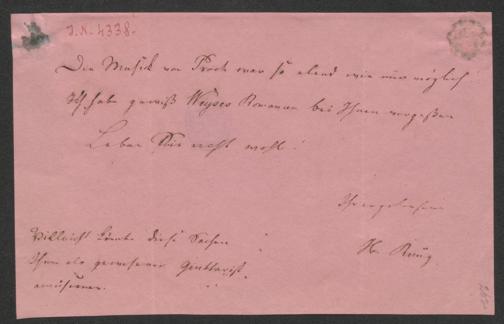 J.N. 4338.
Die Musick von Proch war so elend wie nur möglich
Ich habe gewiß Weyses Romanzen bei Ihnen vergeßen
Leben Sie recht wohl!
Ihr ergebener
H. Rung
Vielleicht könnte diese Sachen
Ihm als gewesener Guittarist
amusieren.